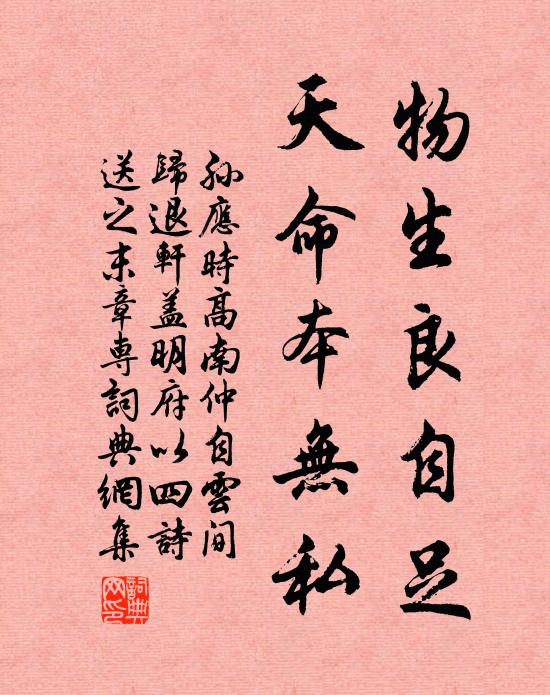 物生良自足
天命本無私
孫應時高南仲自雲间
歸退軒盖明府以四詩
送之末章専詞典網集
詞典網印